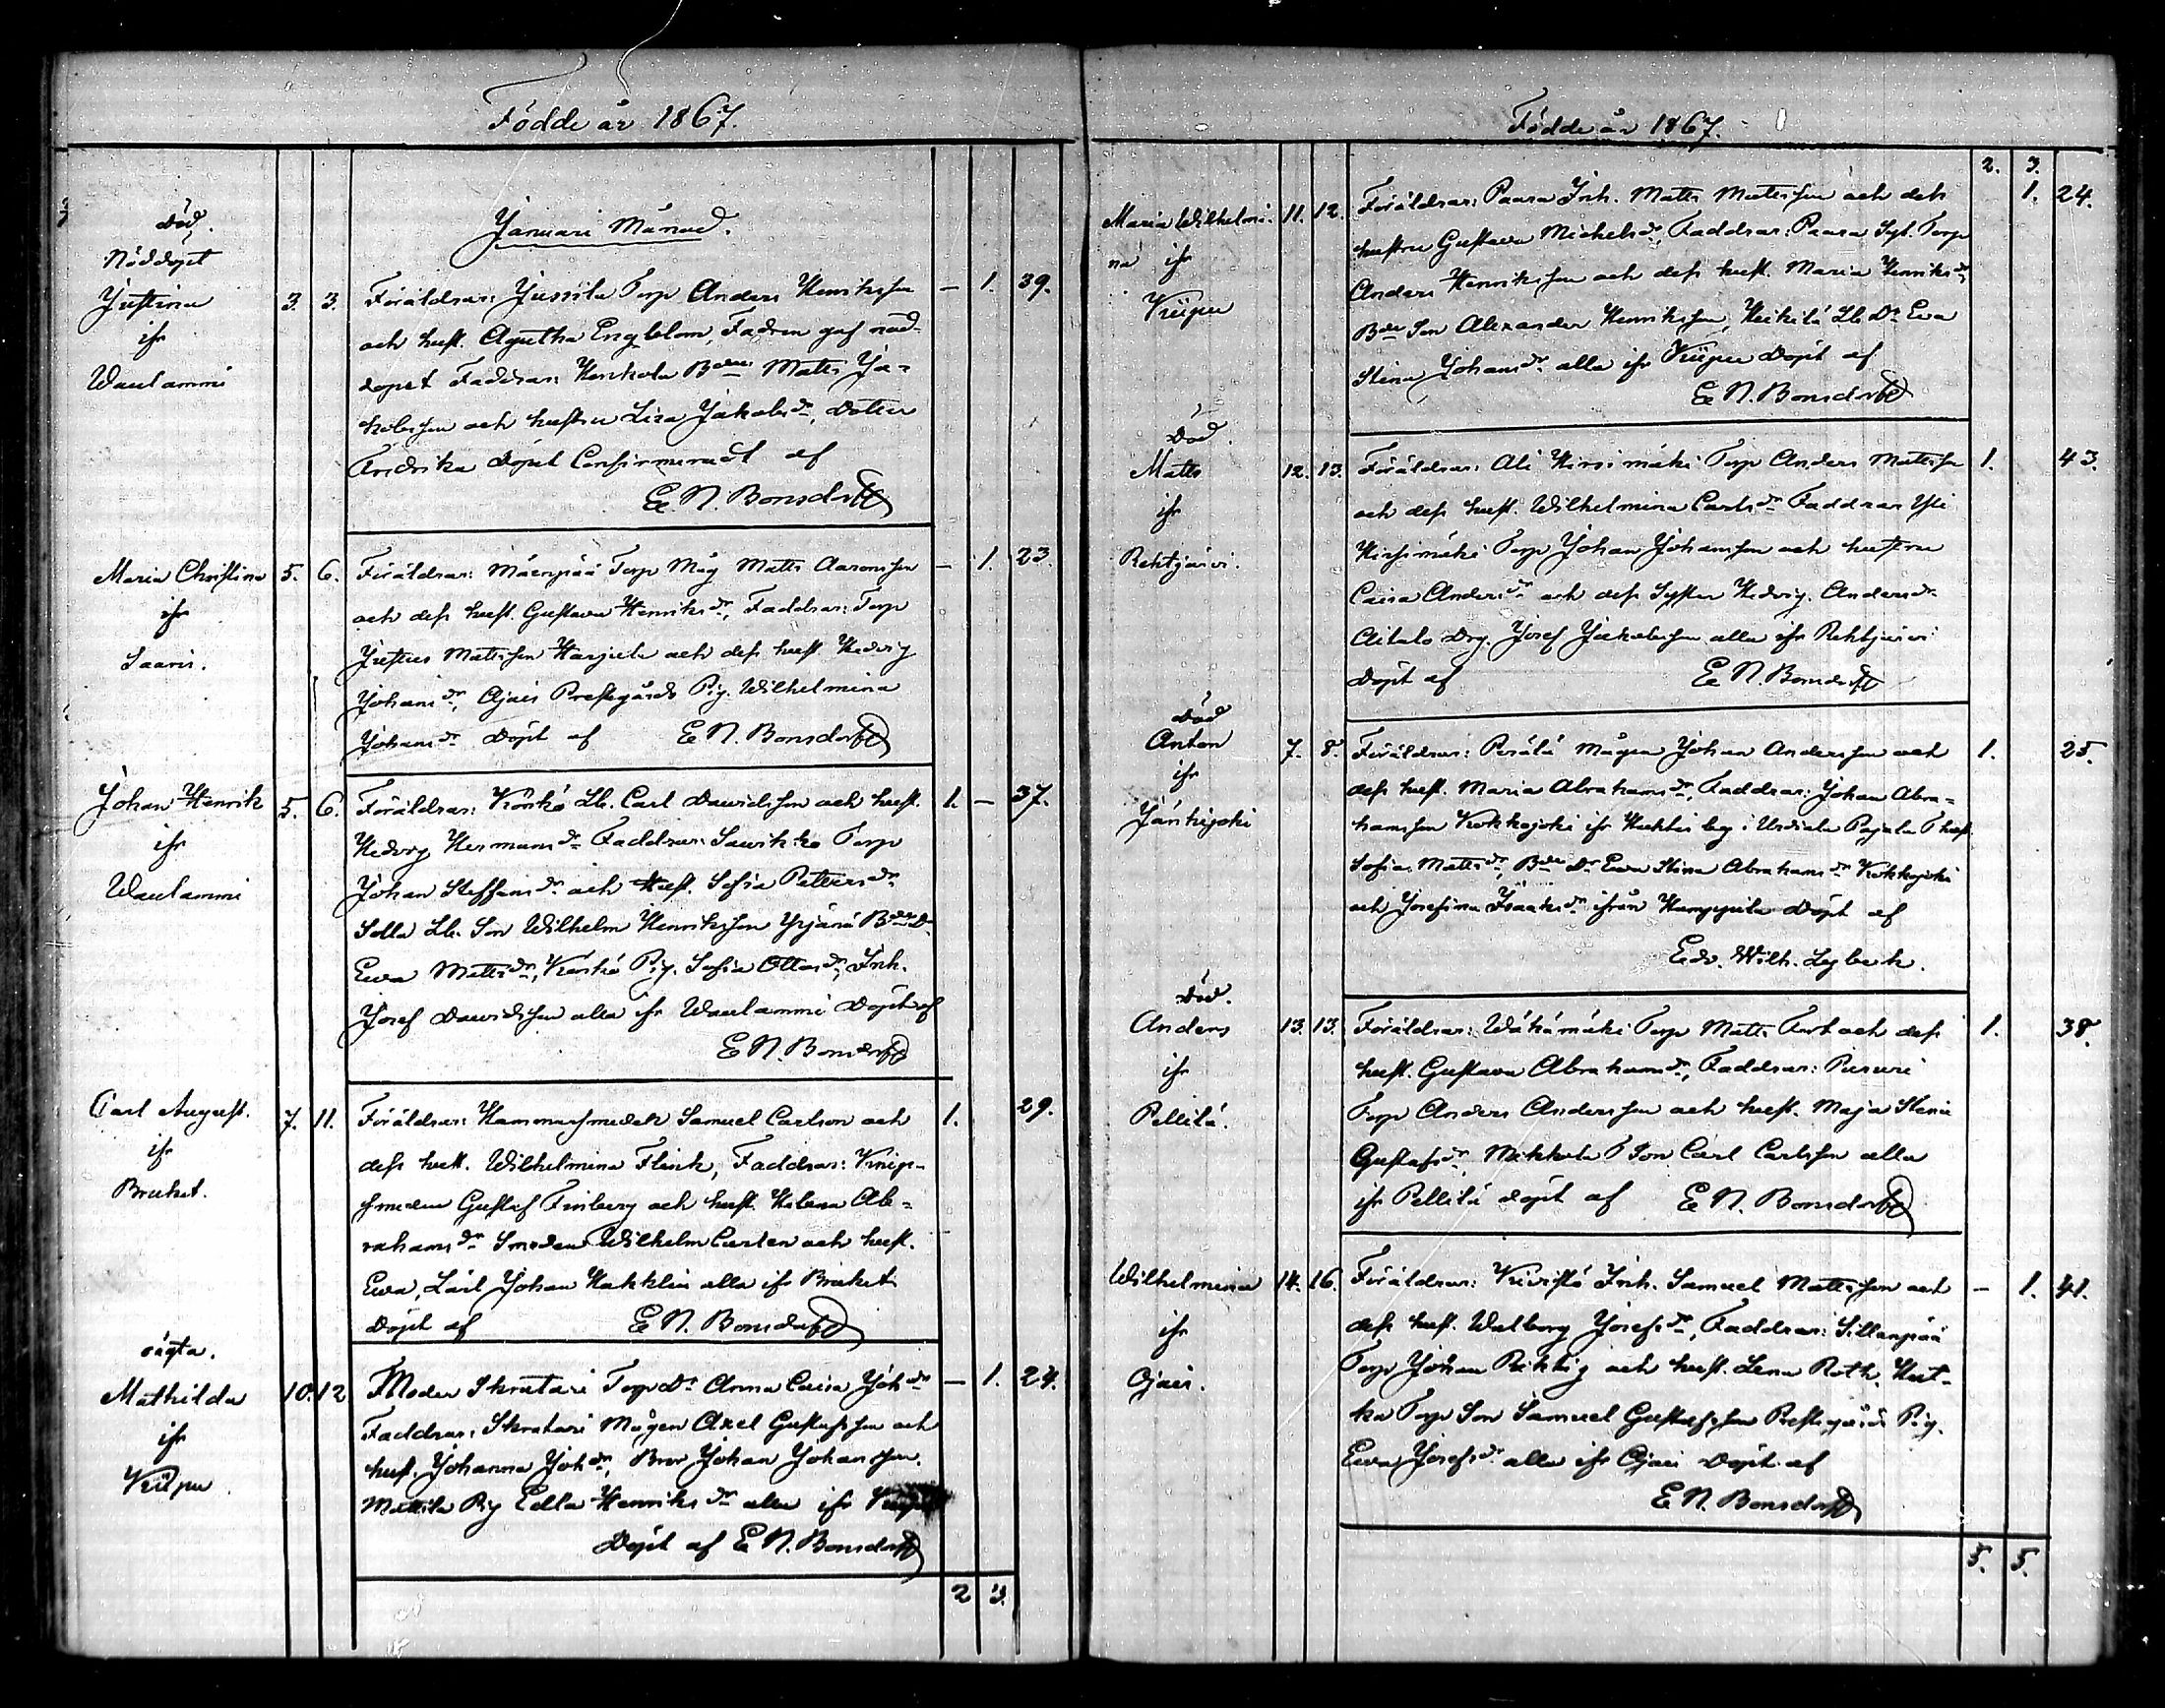 Födde år 1867.
Död.
Nöddöpt
Justina 3. 3.
ifr
Waulammi
Januari Månad.
Föräldrar: Jussila Torp Anders Henriksson — 1. 39.
och hust. Agatha Engblom, Fadren gaf nöd-
dopet Faddrar: Bdn Matts Ja-
kobsson och hustru Lisa Jakobsdr, Doter
Fredrika Döpt Confirmeradt af
E N. Bonsdorff
Maria Christina 5. 6.
ifr
Saaris.
Föräldrar: Mäenpää Torp Måg Matts Aaronsson — 1. 23.
och dess hust. Gustava Henriksdr, Faddrar: Torp
Justus Mattsson Harjula och dess hust. Hedvig
Johansdr, Ojais Prestgårds Pig. Wilhelmina
Johansdr Döpt af E N. Bonsdorff
Johan Henrik 5. 6.
ifr
Waulammi
Föräldrar: Lb. Carl Davidsson och hust. 1. — 37.
Hedvig Hermansdr Faddrar: Torp
Johan Steffansdr och Hust. Sofia Pettersdr
Lb. Son Wilhelm Henriksson Yrjänä Bdn Dr
Ewa Mattsdr, Pig. Sofia Ottosdr, Inh.
Josef Davidsson alla ifr Waulammi Döpt af
E N. Bonsdorff
Carl August. 7. 11.
ifr
Bruket.
Föräldrar: Hammarsmeden Samuel Carlson och 1. 29.
dess hust. Wilhelmina Flink, Faddrar: Knip-
smeden Gustaf Finberg och hust. Helena Ab-
rahamsdr Smeden Wilhelm Carlen och hust.
Ewa, Lärl Johan Hakklin alla ifr Bruket
Döpt af E N. Bonsdorff
oägta.
Mathilda 10. 12
ifr
Kuipu.
Moder Skratari Torp Dr Anna Caisa Johdr — 1. 24.
Faddrar: Skratari Mågen Axel Gustafsson och
hust. Johanna Johdr, Bror Johan Johansson.
Mattila Pig Edla Henriksdr alla ifr
Döpt af E N. Bonsdorff
2 3.
Födde år 1867.
2. 3.
Maria Wilhelmi- 11. 12.
na ifr
Kuipu
Föräldrar: Paara Inh. Matts Mattsson och dess 1. 24.
hustru Gustava Michelsdr, Faddrar: Paara Torp
Anders Henriksson och dess hust. Maria Henriksdr,
Bdn Son Alexander Henriksson, Heikilä Lb. Dr Ewa
Stina Johansdr alla ifr Kuipu Döpt af
E N. Bonsdorff
Död.
Matts 12. 13.
ifr
Rehtjärvi.
Föräldrar: Ali Hirsimäki Torp Anders Mattsson 1. 43.
och dess hust. Wilhelmina Carlsdr Faddrar Yli
Hirsimäki Torp Johan Johansson och hustru
Caisa Andersdr och dess Syster Hedvig Andersdr
Aitalo Drg. Josef Jakobsson alla ifr Rehtjärvi
Döpt af E N. Bonsdorff
Död
Anton 7. 8.
ifr
Jänhijoki
Föräldrar: Perälä Mågen Johan Andersson och 1. 25.
dess hust. Maria Abrahamsdr, Faddrar: Johan Abra-
hamsson Kokkojoki ifr by i Urdiala Pajula T hust.
Sofia Mattsdr, Bdn Dr Ewa Stina Abrahamsdr Kokkojoki
och Josefina Isaaksdr ifrån Döpt af
Edv. Wilh. Lybeck.
Död.
Anders 13. 13.
ifr
Pellilä.
Föräldrar: Wähämäki Torp Matts Fort och dess 1. 38.
hust. Gustava Abrahamsdr, Faddrar:
Torp Anders Andersson och hust. Maja Stina
Gustafsdr, Mikkola T Son Carl Carlsson alla
ifr Pellilä döpt af E N. Bonsdorff
Wilhelmina 14. 16.
ifr
Ojais.
Föräldrar: Kivistö Inh. Samuel Mattsson och — 1. 41.
dess hust. Walborg Josefsdr, Faddrar: Sillanpää
Torp Johan Riktig och hust. Lena Roth. Hut-
ka Torp Son Samuel Gustafsson Prestgårds Pig.
Ewa Josefsdr alla ifr Ojais Döpt af
E N. Bonsdorff
5. 5.